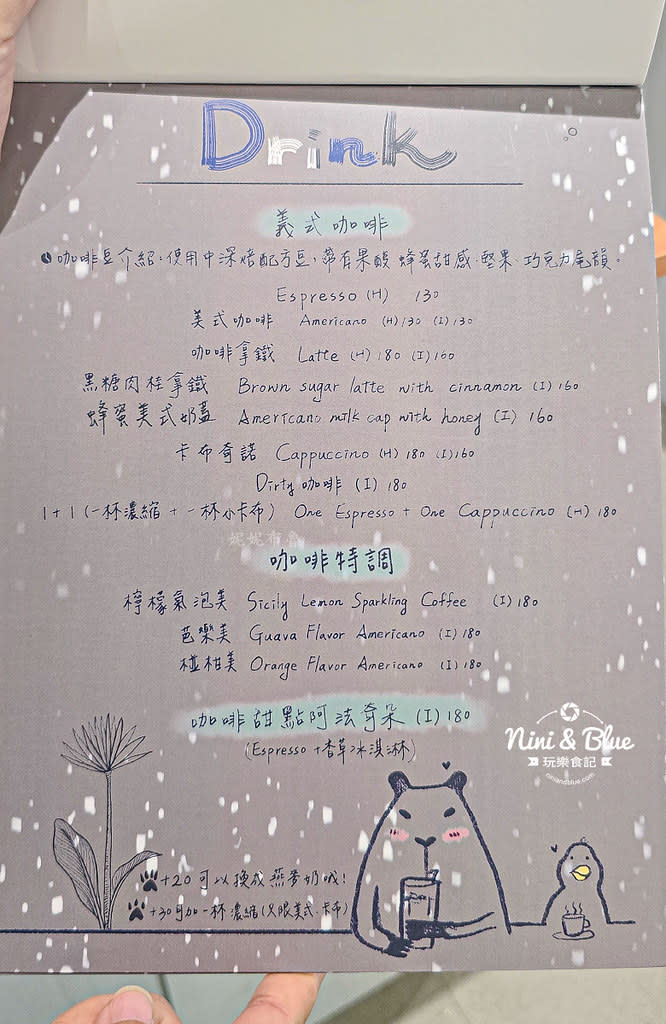 Drink
義式咖啡
咖啡豆介紹:使用中深焙配方豆,帶有果酸.蜂蜜甜感.堅果.巧克力尾韻。
Espresso (H) 130
美式咖啡 Americano (H) 130 (I) 130
咖啡拿鐵 Latte (H) 180 (I) 160
黑糖肉桂拿鐵 Brown sugar latte with cinnamon (I) 160
蜂蜜美式奶蓋 Americano milk cap with honey (I) 160
卡布奇諾 Cappuccino (H) 180 (I) 160
Dirty 咖啡 (I) 180
1+1 (一杯濃縮 + 一杯小卡布) One Espresso + One Cappuccino (H) 180
妮妮布魯
咖啡特調
檸檬氣泡美 Sicily Lemon Sparkling Coffee (I) 180
芭樂美 Guava Flavor Americano (I) 180
椪柑美 Orange Flavor Americano (I) 180
咖啡甜點阿法奇朵 (I) 180
(Espresso + 香草冰淇淋)
Nini & Blue
玩樂食記
niniandblue.com
+20 可以換成燕麥奶哦!
+30可加一杯濃縮(只限美式.卡布)